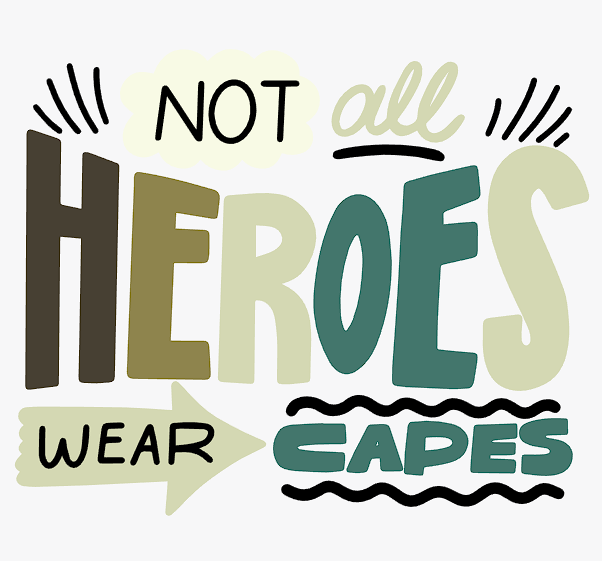 NOT all
HEROES
WEAR CAPES